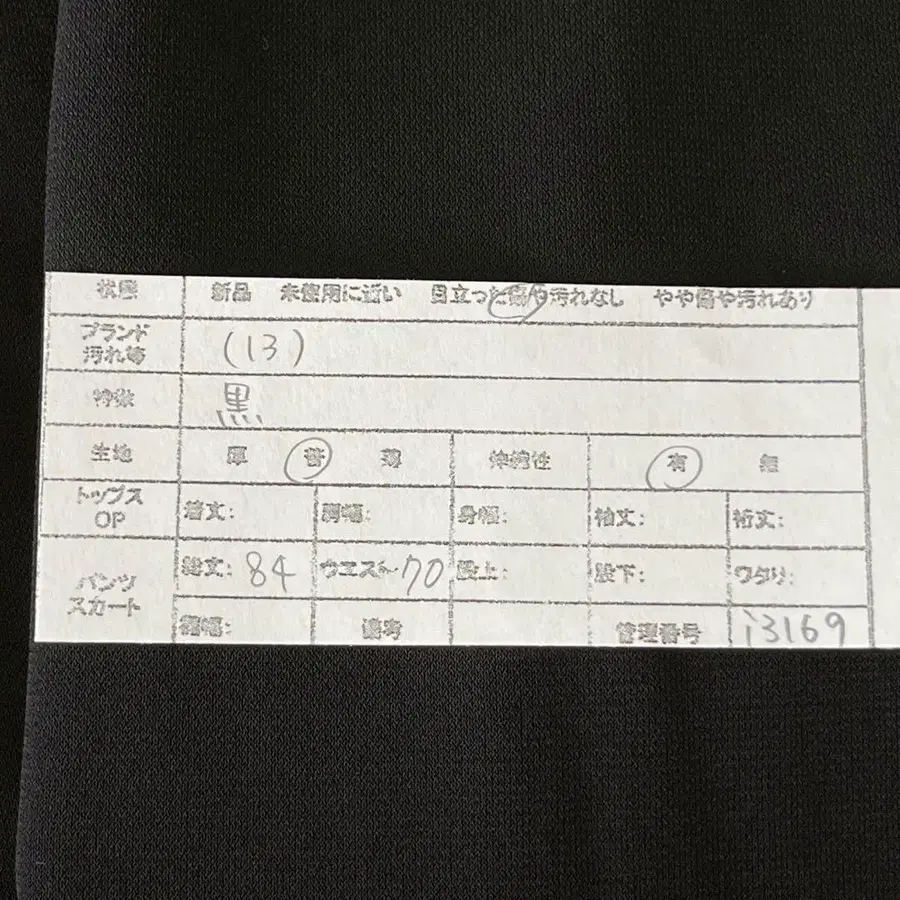 状態 新品 未使用に近い 目立った傷や汚れなし やや傷や汚れあり
ブランド
汚れ等 (13)
特徴 黒
生地 厚 普 薄 伸縮性 有 無
トップス
OP 着丈: 肩幅: 身幅: 袖丈: 裄丈:
パンツ
スカート 総丈: 84 ウエスト 70 股上: 股下: ワタリ:
裾幅: 備考 管理番号 i3169